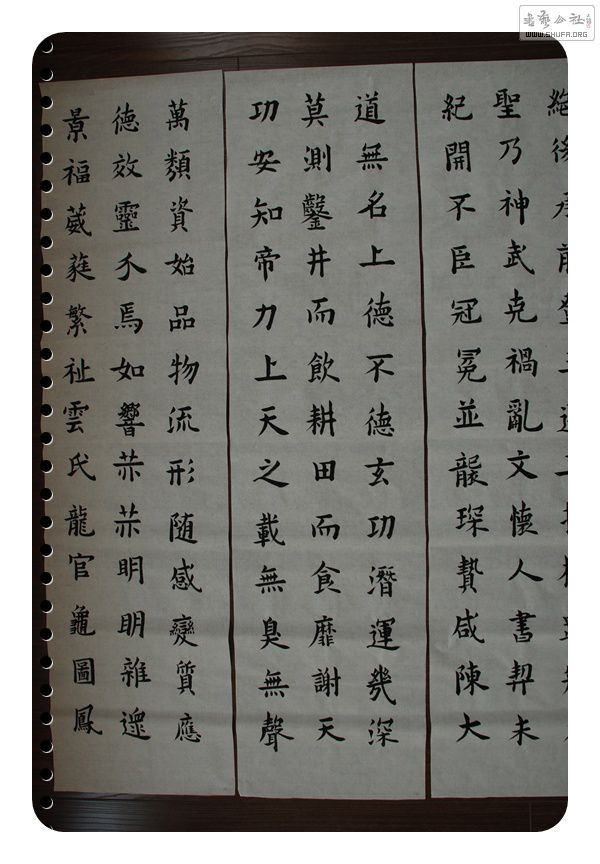 絕後
聖乃神武克禍亂文懷人書契未
紀開不臣冠冕並襲琛贄咸陳大
道無名上德不德玄功潛運幾深
莫測鑿井而飲耕田而食靡謝天
功安知帝力上天之載無臭無聲
萬類資始品物流形随感變質應
德效靈介焉如響赫赫明明雜遝
景福葳蕤繁祉雲氏龍官龜圖鳳
WWW.SHUFA.ORG